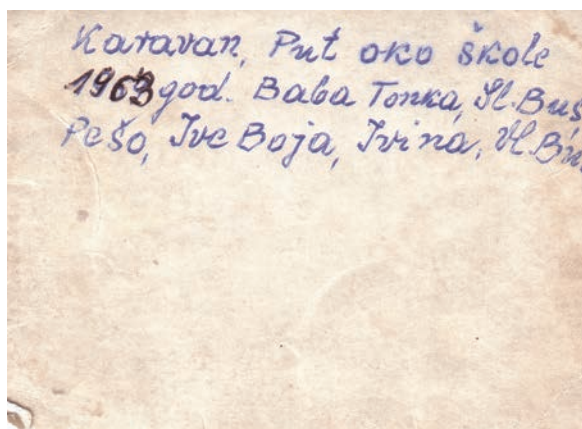 Karavan, Put oko škole
1963 god. Baba Tonka, Sl. Buš
Pešo, Ive Boja, Ivina, Vl.